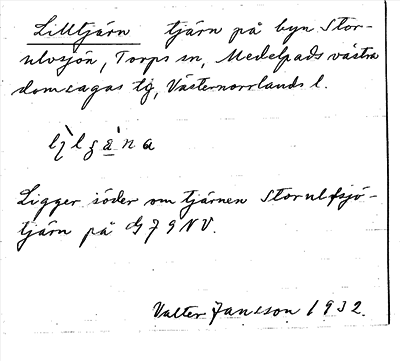 Lilltjärn tjärn på byn Stor-
ulvsjön, Torps sn, Medelpads västra
domsagas tg, Västernorrlands l.
Ligger söder om tjärnen Storulfsjö-
tjärn på G 79 NV.
Valter Jansson 1932.